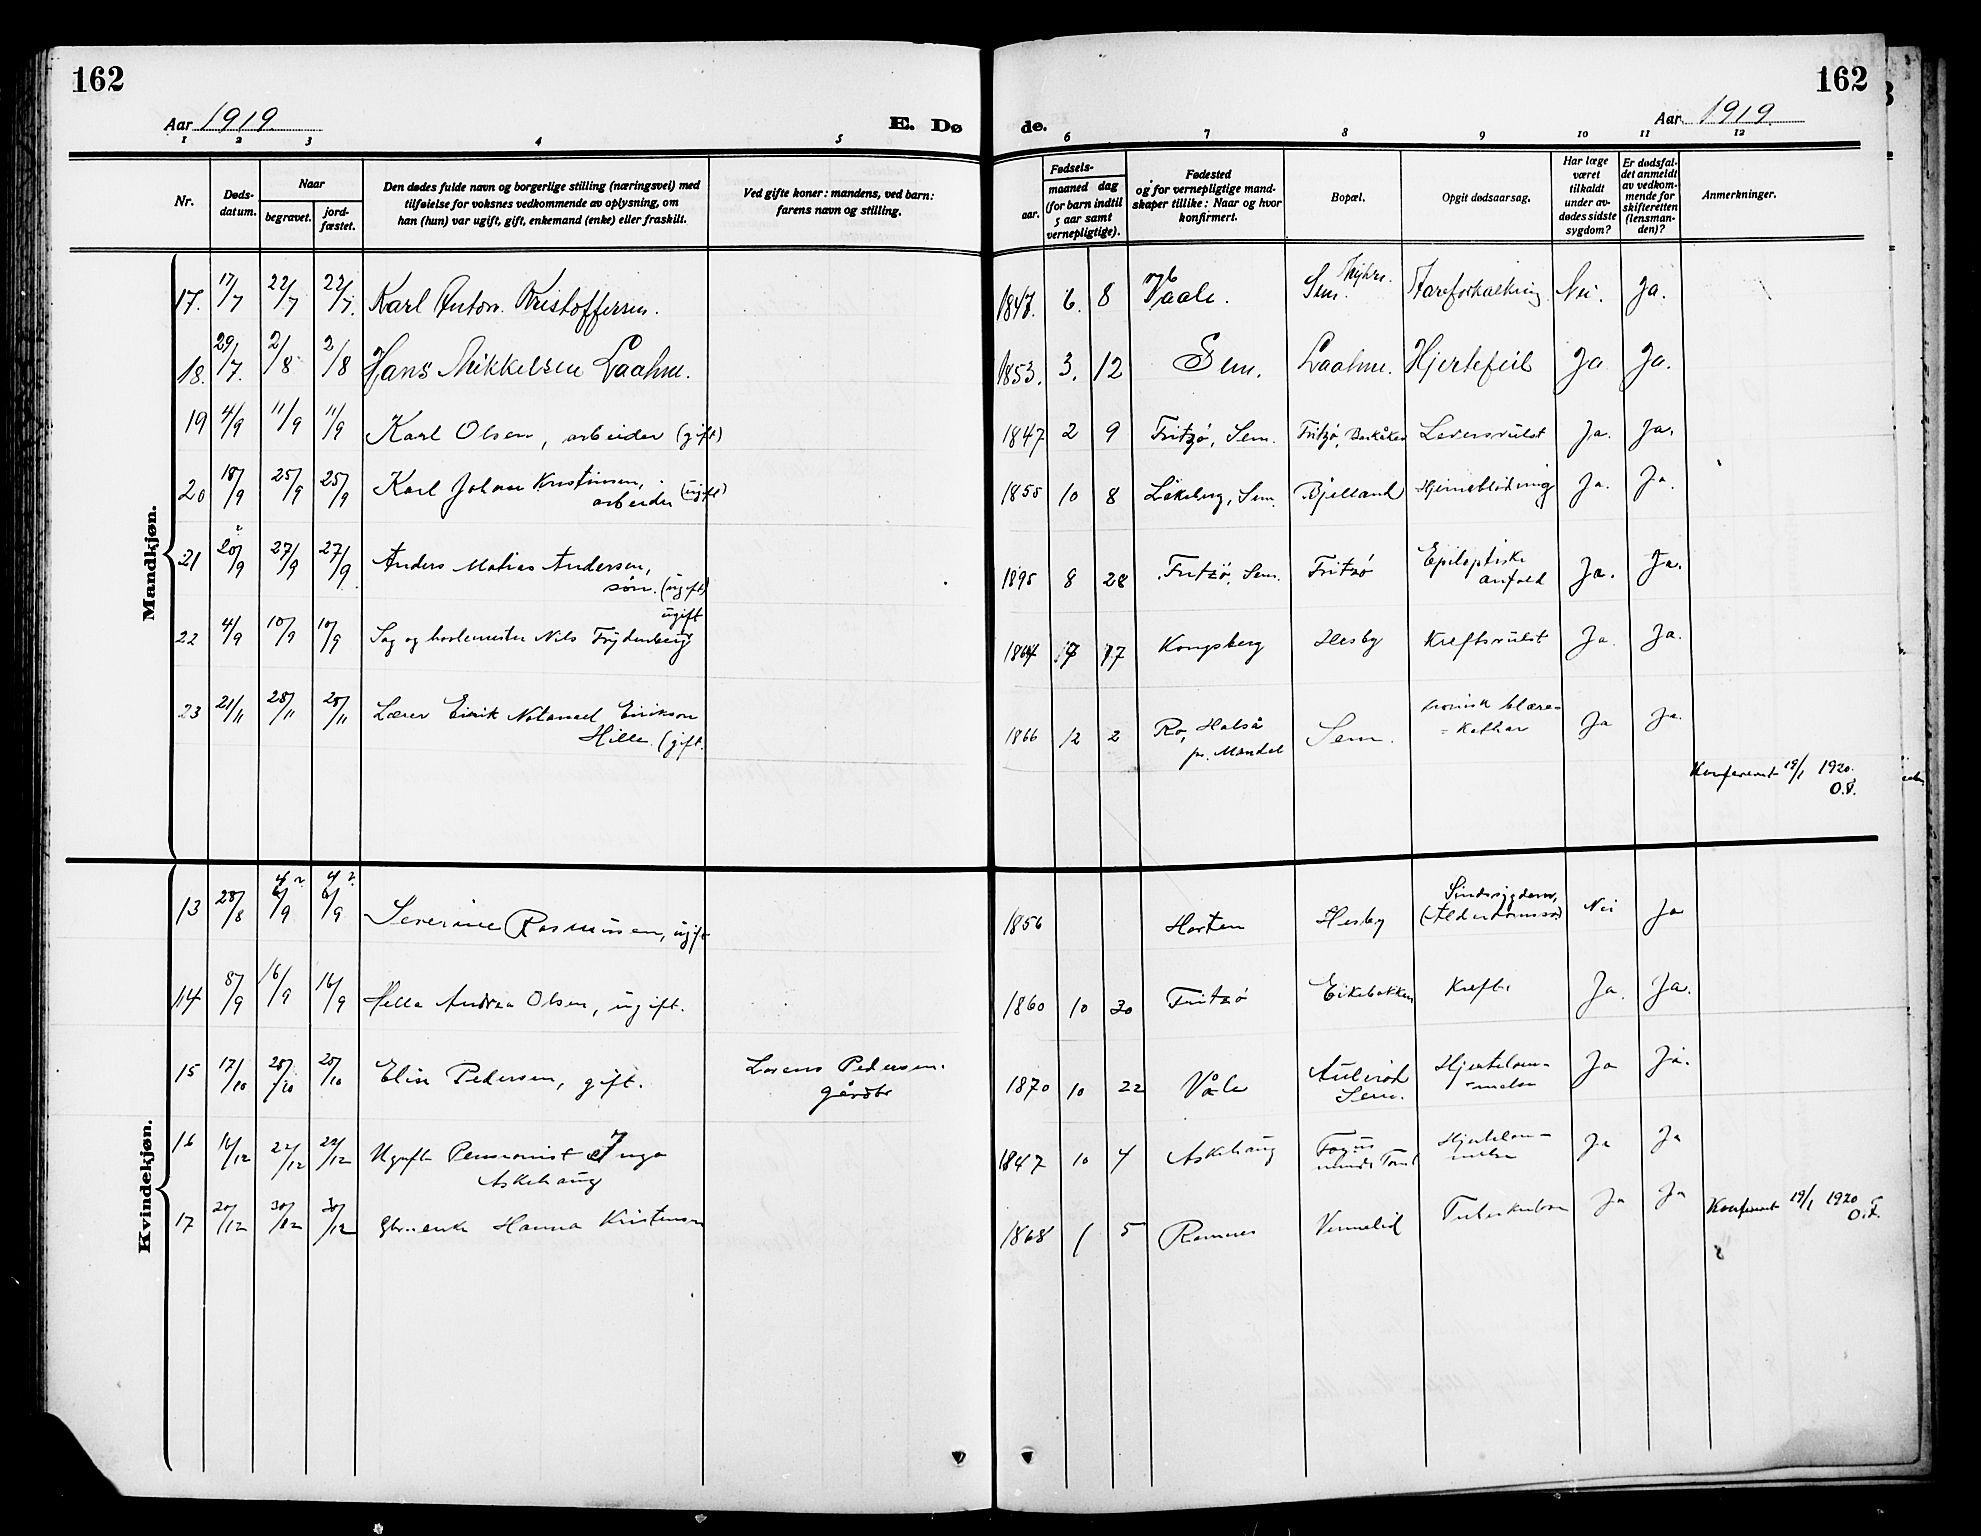 162
162
Aar 1919.
E. Dø
de.
Aar 1919.
1 2 3 4 5 6 7 8 9 10 11 12
Nr.
Døds-
datum.
Naar
begravet.
jord-
fæstet.
Den dødes fulde navn og borgerlige stilling (næringsvei) med
tilføielse for voksnes vedkommende av oplysning, om
han (hun) var ugift, gift, enkemand (enke) eller fraskilt.
Ved gifte koner: mandens, ved barn:
farens navn og stilling.
Fødsels-
aar.
maaned dag
(for barn indtil
5 aar samt
vernepligtige).
Fødested
og for vernepligtige mand-
skaper tillike: Naar og hvor
konfirmert.
Bopæl.
Opgit dødsaarsag.
Har læge
været
tilkaldt
under av-
dødes sidste
sygdom?
Er dødsfal-
det anmeldt
av vedkom-
mende for
skifteretten
(lensman-
den)?
Anmerkninger.
Mandkjøn.
17. 17/7 22/7 22/7. Karl Anton Kristoffersen. 1847. 6. 8 Vaale. Sem. Aareforkalkning Nei. Ja.
18. 29/7. 2/8 2/8 Hans Mikkelsen Laahne. 1853. 3. 12 Sem. Laahne. Hjertefeil Ja Ja.
19 4/9 11/9 11/9 Karl Olsen, arbeider (gift) 1847 2 9 Fritzø, Sem. Fritzø, Barkåker Leversvulst Ja. Ja.
20 18/9 25/9 25/9 Karl Johan Kristinsen,
arbeider (ugift) 1855 10 8 Løkeberg, Sem. Bjelland Hjerneblødning Ja. Ja.
21 20/9 27/9 27/9 Anders Matias Andersen,
søn. (ugift) 1895 8 28 Fritzø, Sem. Fritzø Epileptiske
anfald Ja. Ja.
ugift
22 4/9 10/9 10/9 Sag og høvlemester Nils Frydenberg 1864 17 Kongsberg Hesby Kreftsvulst Ja. Ja.
23 21/11 28/11 28/11 Lærer Eirik Natanael Eirikson
Hille. (gift. 1866 12 2 Ro, Halså
pr. Mandal Sem. kronisk blære-
= kathar Ja Ja.
Konferert 19/1 1920.
O.F.
Kvindekjøn.
13 28/8 6/9 6/9 Severine Rasmussen, ugift 1856 Horten Hesby Sindssygdom,
(Alderdomssv.) Nei Ja
14 8/9 16/9 16/9 Hella Andrea Olsen, ugift. 1860 10 30 Fritzø Eikebakken Kreft. Ja. Ja.
15 17/10 25/10 25/10 Elise Pedersen, gift. Lorens Pedersen.
gårdbr 1870 10 22 Våle Aulerød
Sem. Hjertelam-
=melse Ja Ja.
16 16/12 22/12 22/12 Ugift Pensionist Inga
Askehaug 1847 10 4 Askehaug Hjertelam-
melse Ja Ja
17 20/12 30/12 30/12 Gbr.enke Hanna Kristensen 1868 1 5 Ramnes Vennelid Tuberkulose Ja Ja
Konferert 19/1 1920
O.F.